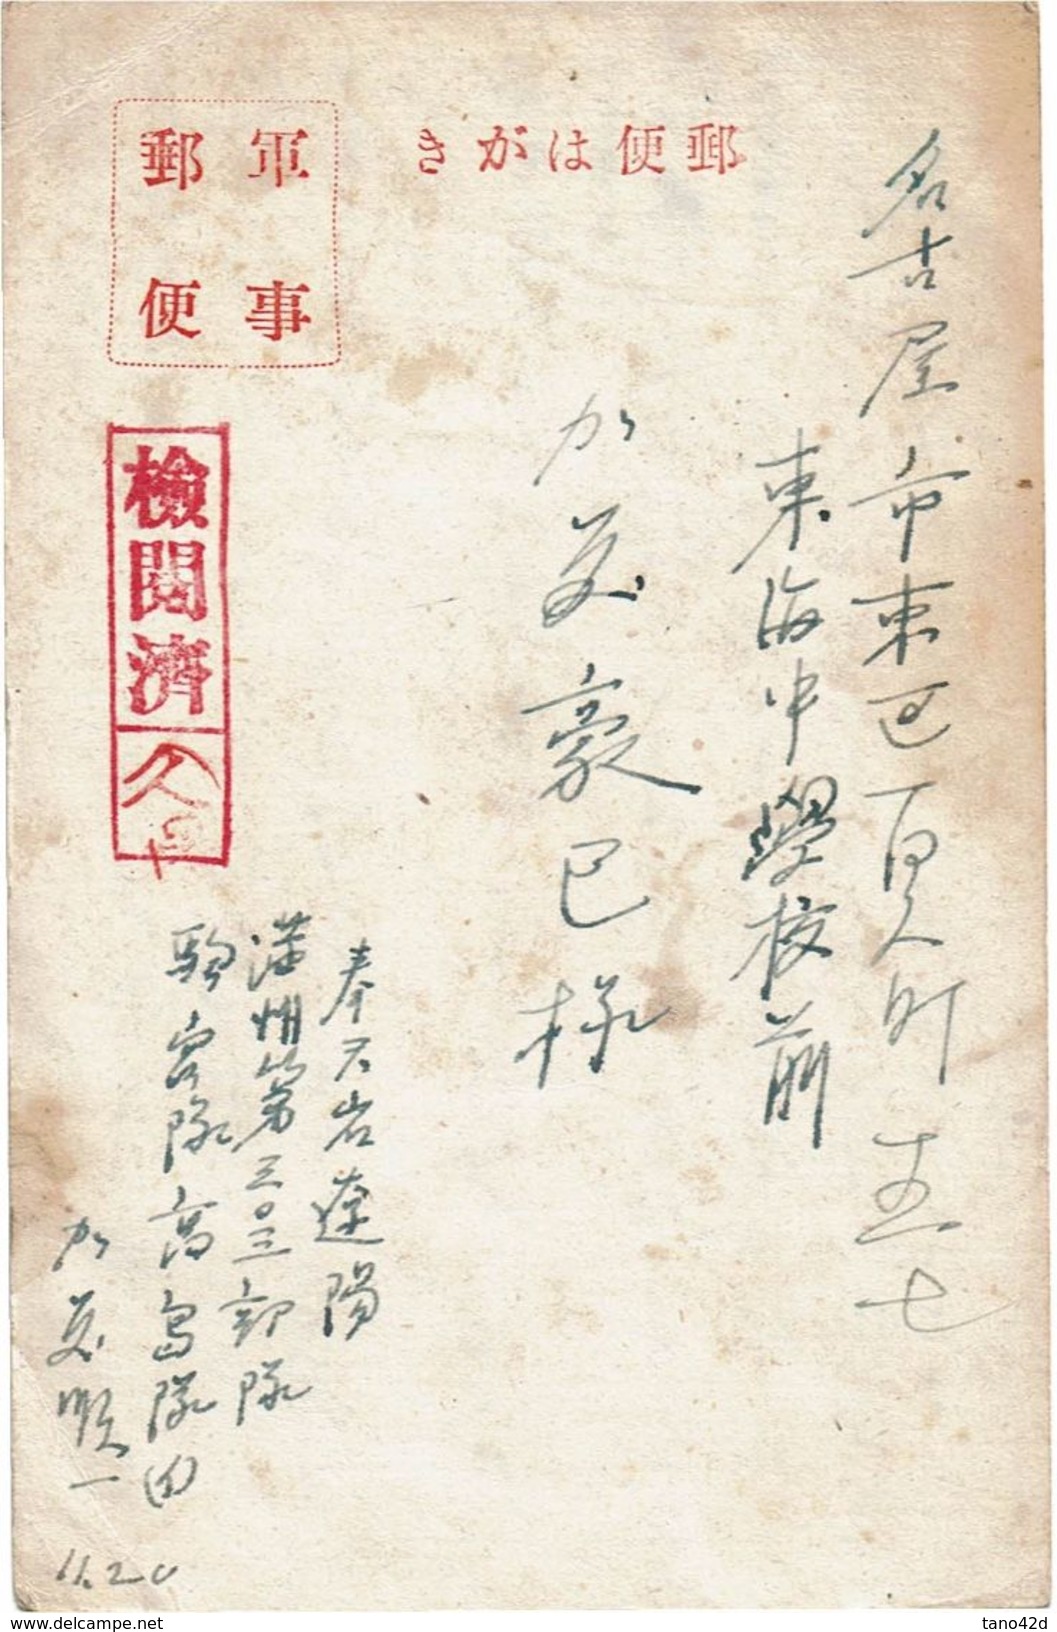 郵便はがき
軍事
郵便
検閲済
名古屋市東区百人町五七
東海中學校前
加茂豪巳様
奉天省遼陽
満州第三〇三部隊
隊高島隊
加茂順一
11.20
tano42d